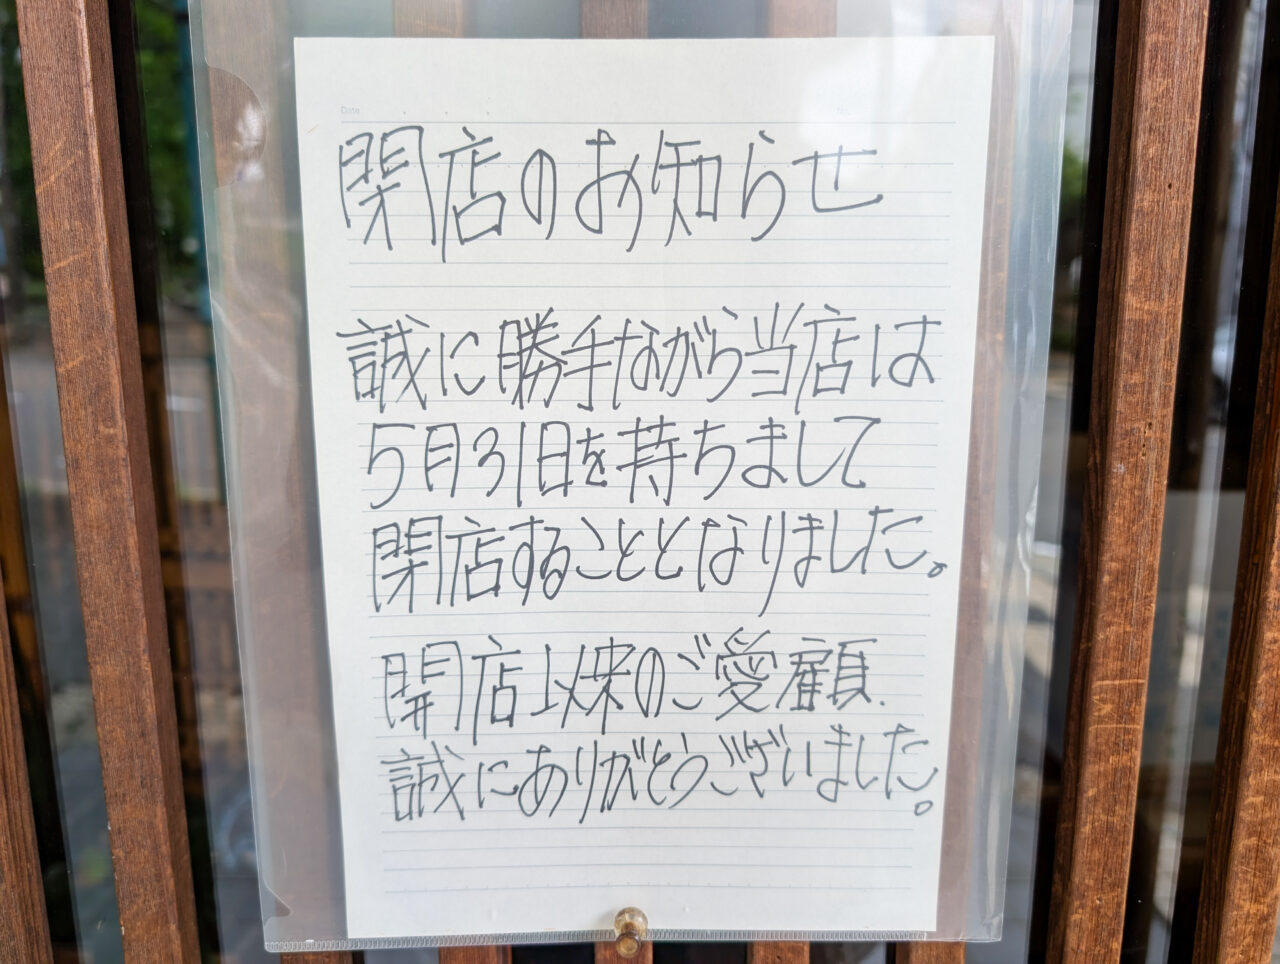 Date
閉店のお知らせ
誠に勝手ながら当店は
5月31日を持ちまして
閉店することとなりました。
開店以来のご愛顧
誠にありがとうございました。